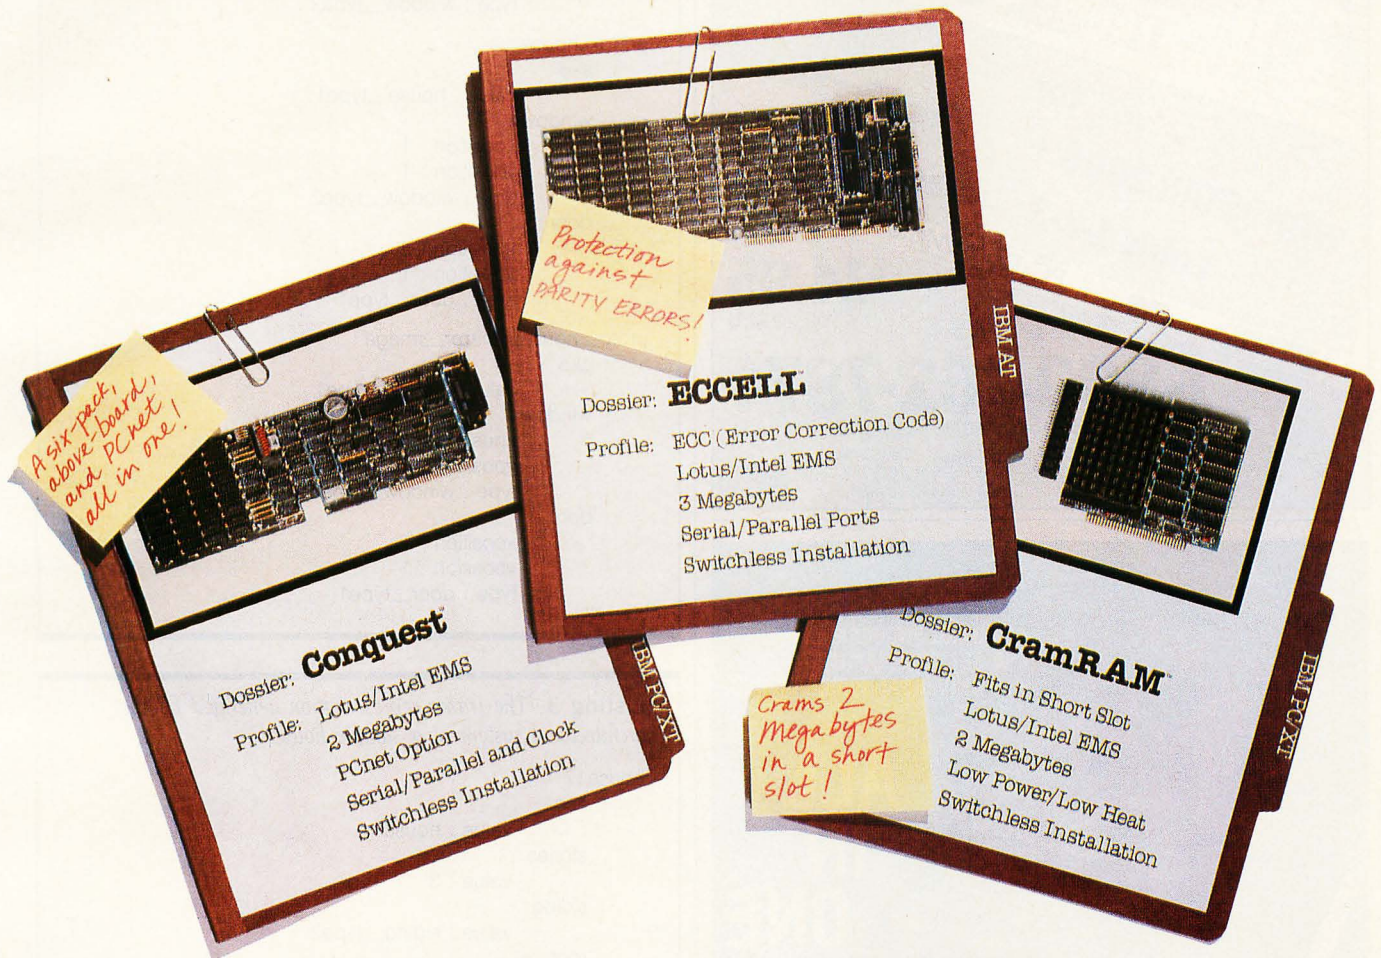 A six-pack,
above-board,
and PCnet
all in one!
Dossier: Conquest™
Profile: Lotus/Intel EMS
2 Megabytes
PCnet Option
Serial/Parallel and Clock
Switchless Installation
IBM PC/XT
Protection
against
PARITY ERRORS!
Dossier: ECCELL™
Profile: ECC (Error Correction Code)
Lotus/Intel EMS
3 Megabytes
Serial/Parallel Ports
Switchless Installation
IBM AT
Dossier: CramRAM™
Profile: Fits in Short Slot
Lotus/Intel EMS
2 Megabytes
Low Power/Low Heat
Switchless Installation
IBM PC/XT
Crams 2
Megabytes
in a short
slot!